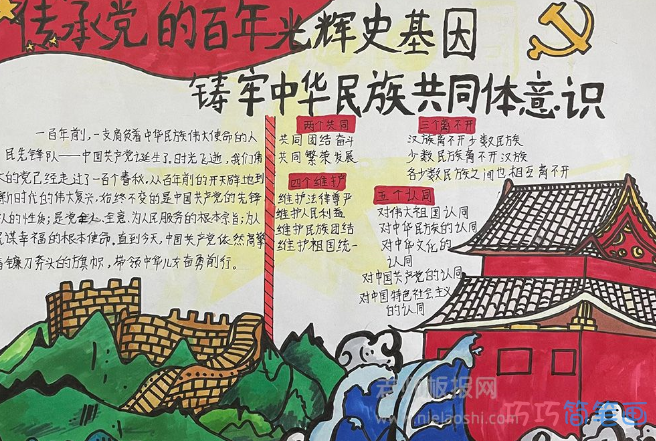 传承党的百年光辉史基因
铸牢中华民族共同体意识
一百年前,一支肩负着中华民族伟大使命的人
民先锋队——中国共产党诞生了,时光飞逝,我们伟
大的党已经走过了一百个春秋,从百年前的开天辟地到
新时代的伟大复兴,始终不变的是中国共产党的先锋
队的性质;是党
全心全意,为人民服务的根本宗旨;为人
民谋幸福的根本使命,直到今天,中国共产党依然高擎
着镰刀斧头的旗帜,带领中华儿女奋勇前行。
两个共同
共同团结奋斗
共同繁荣发展
四个维护
维护法律尊严
维护人民利益
维护民族团结
维护祖国统一
三个离不开
汉族离不开少数民族
少数民族离不开汉族
各少数民族之间也相互离不开
五个认同
对伟大祖国认同
对中华民族的认同
对中华文化的
认同
对中国共产党的认同
对中国特色社会主义
的认同
板报网
www.nielaoshi.com
巧巧简笔画